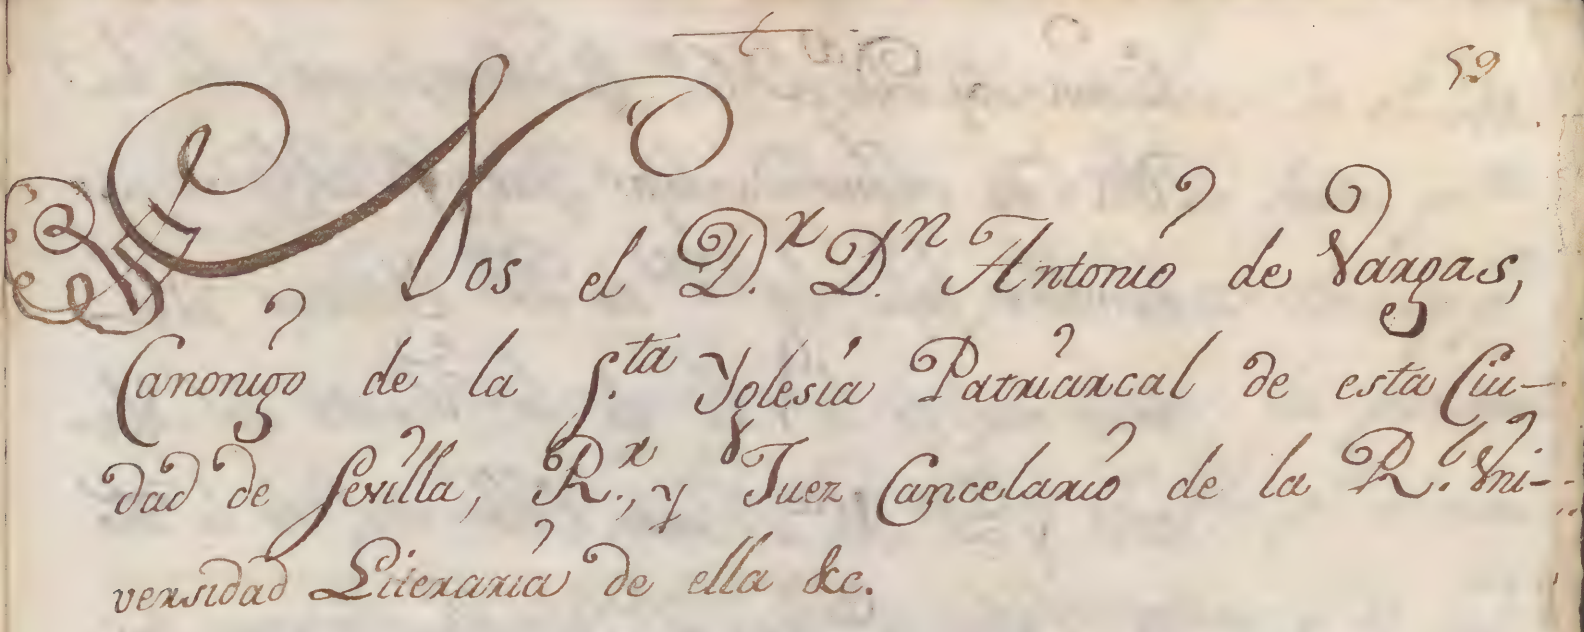 59
Nos el D.r D.n Antonio de Vargas,
Canonigo de la S.ta Yglesia Patriarcal de esta Ciu-
dad de Sevilla, R.r, y Juez Cancelario de la R.l Uni-
versidad Literaria de ella &c.